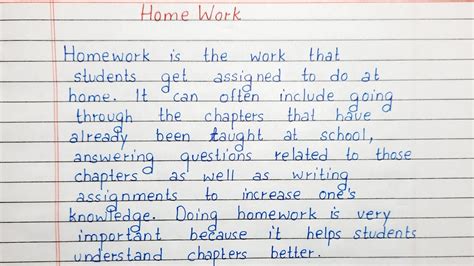 Home Work
Homework is the work that
students get assigned to do at
home. It can often include going
through the chapters that have
already been taught at school,
answering questions related to those
chapters as well as writing
assignments to increase one's
knowledge. Doing homework is very
important because it helps students
understand chapters better.